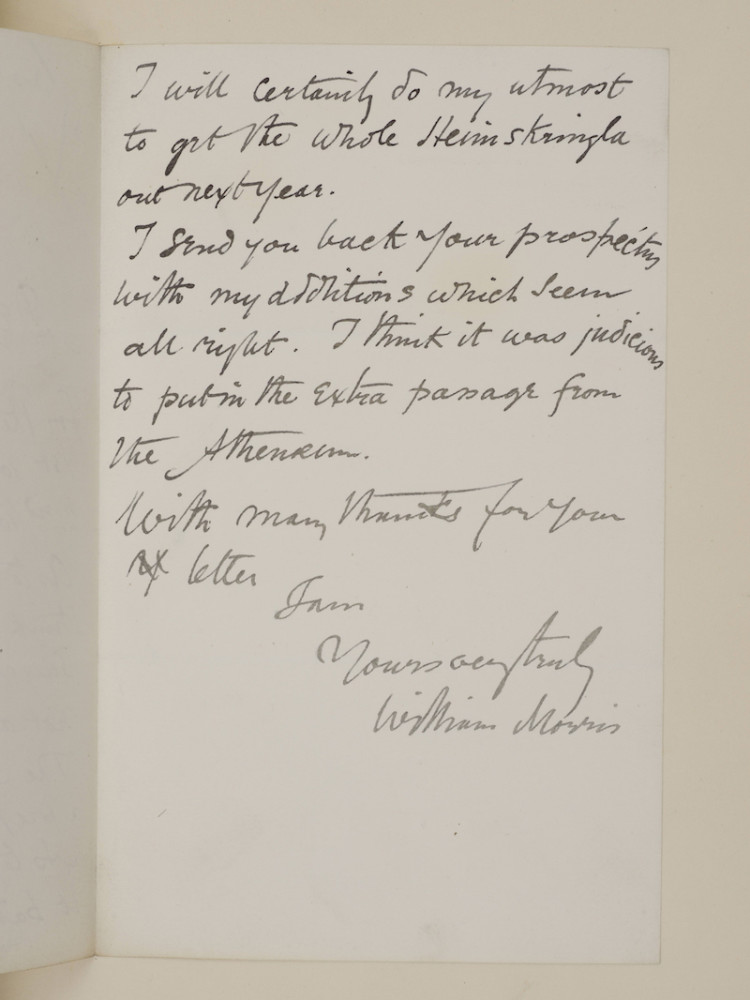 I will certainly do my utmost
to get the whole Heimskringla
out next year.
I send you back your prospectus
with my additions which seem
all right. I think it was judicious
to put in the extra passage from
the Athenæum.
With many thanks for your
letter
I am
Yours very truly
William Morris